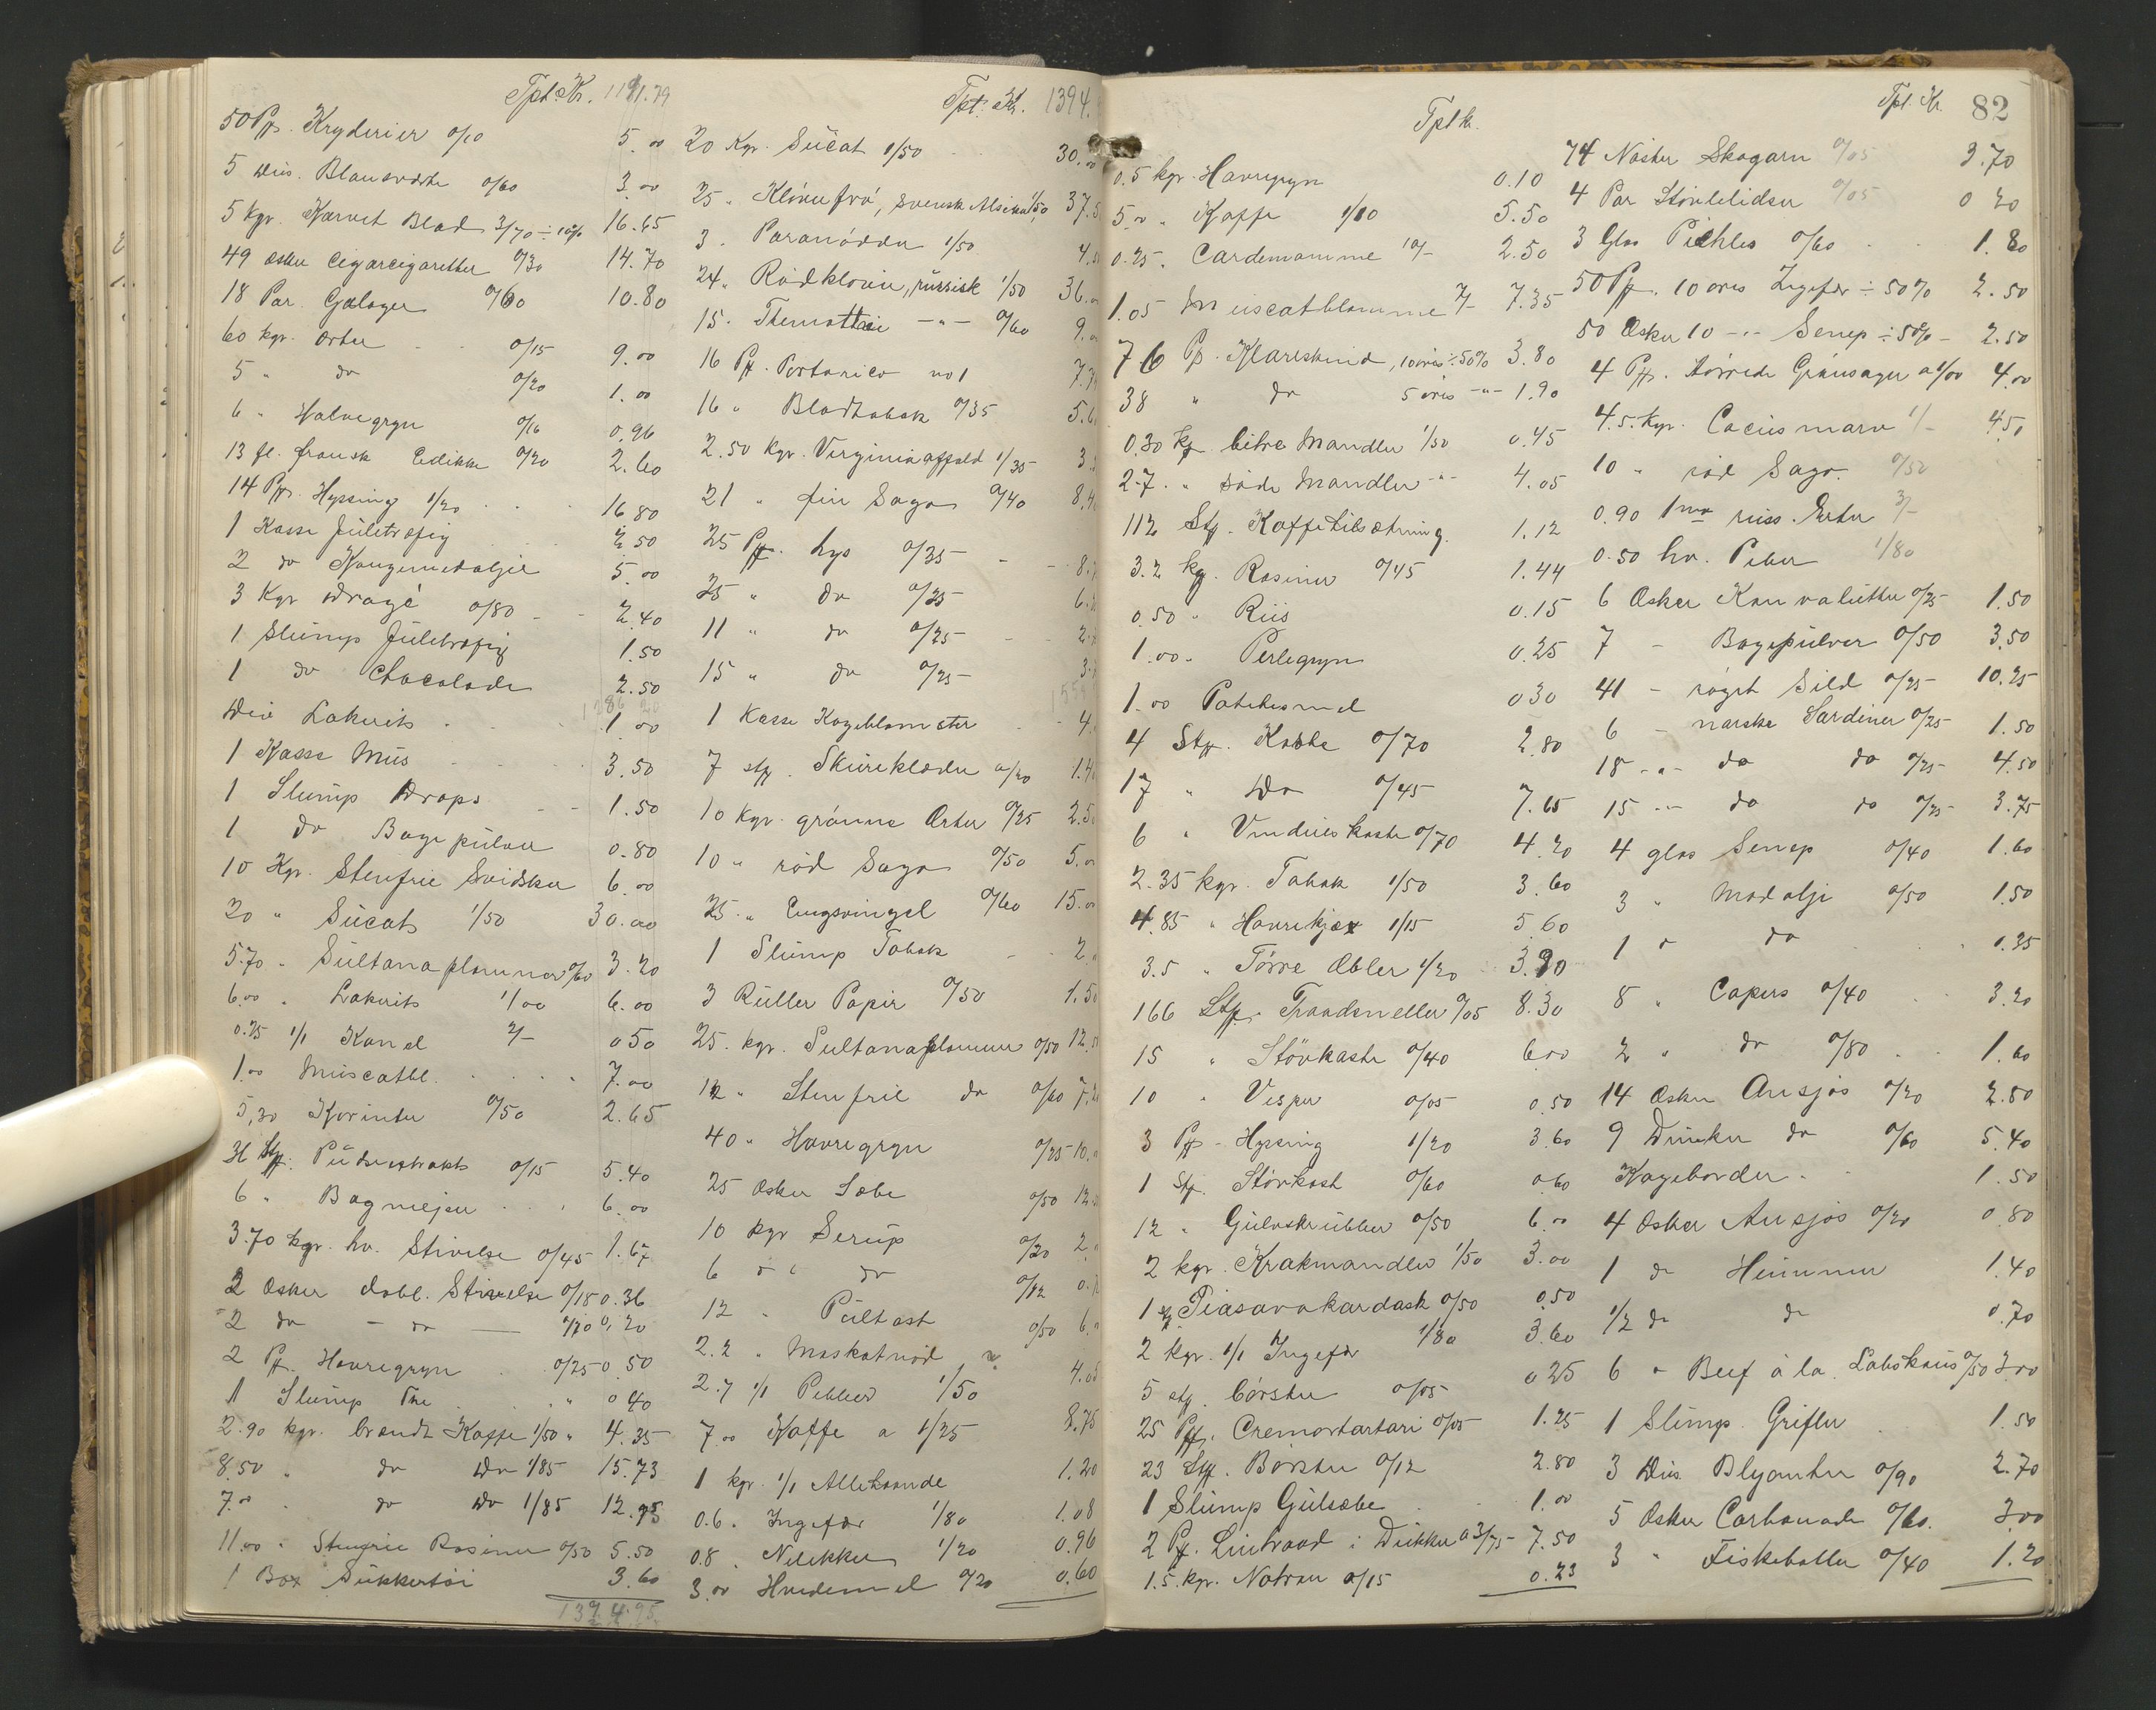 Tpt. Kr. 1191.79
50 Pk. Kryderier 0/10 5.00
5 Dus. Blaasværte 0/60 3.00
5 kgr. Karvet Blad 3/70 ÷ 10% 16.65
49 æsker Cigarcigaretter 0/30 14.70
18 Par Galoger 0/60 10.80
60 kgr. Ærter 0/15 9.00
5 " do 0/20 1.00
6 " Halvegryn 0/16 0.96
13 fl. fransk Edikke 0/20 2.60
14 Pk. Hyssing 1/20 16.80
1 Kasse Juletrefig 2.50
2 do Kongemedalje 5.00
3 Kgr Dragé 0/80 2.40
1 Slump Juletrefig 1.50
1 do Chocolade 2.50
Div Lakrits 1.00
1 Kasse Mus 3.50
1 Slump Drops 1.50
1 do Bagepulver 0.80
10 Kgr. Stenfrie Svidsker 6.00
20 " Sucats 1/50 30.00
5.70 " Sultanaplommer 0/60 3.20
6.00 " Lakrits 1/00 6.00
0.25 1/1 Kanel 2/- 0.50
1.00 Muscatbl. 7.00
5.30 Korinter 0/50 2.65
36 Stk. Pudseextrakt 0/15 5.40
6 " Bagmejser 6.00
3.70 kgr. hv. Stivelse 0/45 1.67
2 Æsker dobl. Stivelse 0/18 0.36
2 do - do - 0/10 0.20
2 Pk. Havregryn 0/25 0.50
1 Slump The 0.40
2.90 kgr. brændt Kaffe 1/50 4.35
8.50 " do Do 1/85 15.73
7.00 " do Do 1/85 12.95
11.00 " Stenfrie Rosiner 0/50 5.50
1 Box Sukkertøi 3.60
1374.95
Tpt. Kr. 1394.
20 Kgr. Sucat 1/50 30.00
25 " Kløverfrø, svensk Alsike 1/50 37.5
3 " Paranødder 1/50 4.5
24 " Rødkløver, russisk 1/50 36.
15 " Themothei - " - 0/60 9.
16 Pk. Portorico no 1
16 " Bladtobak 0/35 5.6
2.50 Kgr. Virginiaaffald 1/35 3.
21 " fin Sago 0/40 8.4
25 Pk. Lys 0/35 8.
25 " do 0/25 6.
11 " do 0/25 2.
15 " do 0/25 3.
1 Kasse Kageblomster 4.
7 stk. Skureklæder 0/20 1.4
10 Kgr. grønne Ærter 0/25 2.5
10 " rød Sago 0/50 5.0
25 " Engsvingel 0/60 15.0
1 Slump Tobak 2.
3 Ruller Papir 0/50 1.5
25 kgr. Sultanaplommer 0/50 12.5
12 " Stenfrie do 0/60 7.2
40 " Havregryn 0/25 10.
25 Æsker Sæbe 0/50 12.
10 kgr Serup 0/20 2.
6 " do 0/12 0.
12 " Pultost 0/50 6.
2.2 " Muskatnød
2.7 1/1 Pebber 1/50 4.05
7.00 Kaffe a 1/25 8.75
1 kgr. 1/1 Allehaande 1.20
0.6 " Ingefær 1/80 1.08
0.8 " Nellikker 1/20 0.96
3.00 Hvedemel 0/20 0.60
Tpt kr.
0.5 kgr. Havregryn 0.10
5.00 " Kaffe 1/10 5.50
0.25 " Cardemomme 10/- 2.50
1.05 Muscatblomme 7/- 7.35
76 Pk. Klareskind, 10 øres ÷ 50% 3.80
38 " do 5 øres - " - 1.90
0.30 kg bitre Mandler 1/50 0.45
2.7 " søde Mandler - " - 4.05
112 Stk. Kaffetilsætning. 1.12
3.2 kg. Rosiner 0/45 1.44
0.50 " Riis 0.15
1.00 " Perlegryn 0.25
1.00 Potetesmel 0.30
4 Stk. Koste 0/70 2.80
17 " Do 0/45 7.65
6 " Vindueskoste 0/70 4.20
2.35 kgr. Tobak 1/50 3.60
4.85 " Havrekjæx 1/15 5.60
3.5 " Tørre Æbler 1/20 3.90
166 Stk. Traadsneller 0/05 8.30
15 " Støvkoste 0/40 6.00
10 " Visper 0/05 0.50
3 Pk - Hyssing 1/20 3.60
1 Stk. Støvkost 0/60 0.60
12 " Gulvskrubber 0/50 6.00
2 kgr. Krakmandler 1/50 3.00
1 stk Piasavakardask 0/50 0.50
2 kgr. 1/1 Ingefær 1/80 3.60
5 stk. børster 0/05 0.25
25 Pk. Cremortartari 0/05 1.25
23 Stk. Børster 0/12 2.80
1 Slump Gulsæbe 1.00
2 Pk. Lintraad i Dukker a 3/75 7.50
1.5 kgr. Natron 0/15 0.23
Tpt. Kr. 82
74 Nøster Skogarn 0/05 3.70
4 Par Støvlelidser 0/05 0.20
3 Glas Pickles 0/60 1.80
50 Pk. 10 øres Ingefær ÷ 50% 2.50
50 Æsker 10 - " - Senep ÷ 50% - 2.50
4 Pk. tørrede Grønsager a 1/00 4.00
4.5 Kgr. Cocusmarv 1/- 4.50
10 " rød Sago. 0/50
0.90 1ma russ. Erter 3/-
0.50 hv. Peber 1/80
6 Æsker Konvolutter 0/25 1.50
7 - Bagepulver 0/50 3.50
41 - røget Sild 0/25 10.25
6 - norske Sardiner 0/25 1.50
18 - " - do do 0/25 4.50
15 - " - do do 0/25 3.75
4 glas Senep 0/40 1.60
3 " Madolje 0/50 1.50
1 " do 0.35
8 " Capers 0/40 3.20
2 " do 0/80 1.60
14 Æsker Ansjos 0/20 2.80
9 Dunker do 0/60 5.40
Kageborder. 1.50
4 Æsker Ansjos 0/20 0.80
1 do Hummer 1.40
1/2 do do 0.70
6 " Beef à la Labskaus 0/50 3.00
1 Slump Grifler 1.50
3 Dus Blyanter 0/90 2.70
5 Æsker Carbonade 0/60. 3.00
3 " Fiskeboller 0/40 1.20